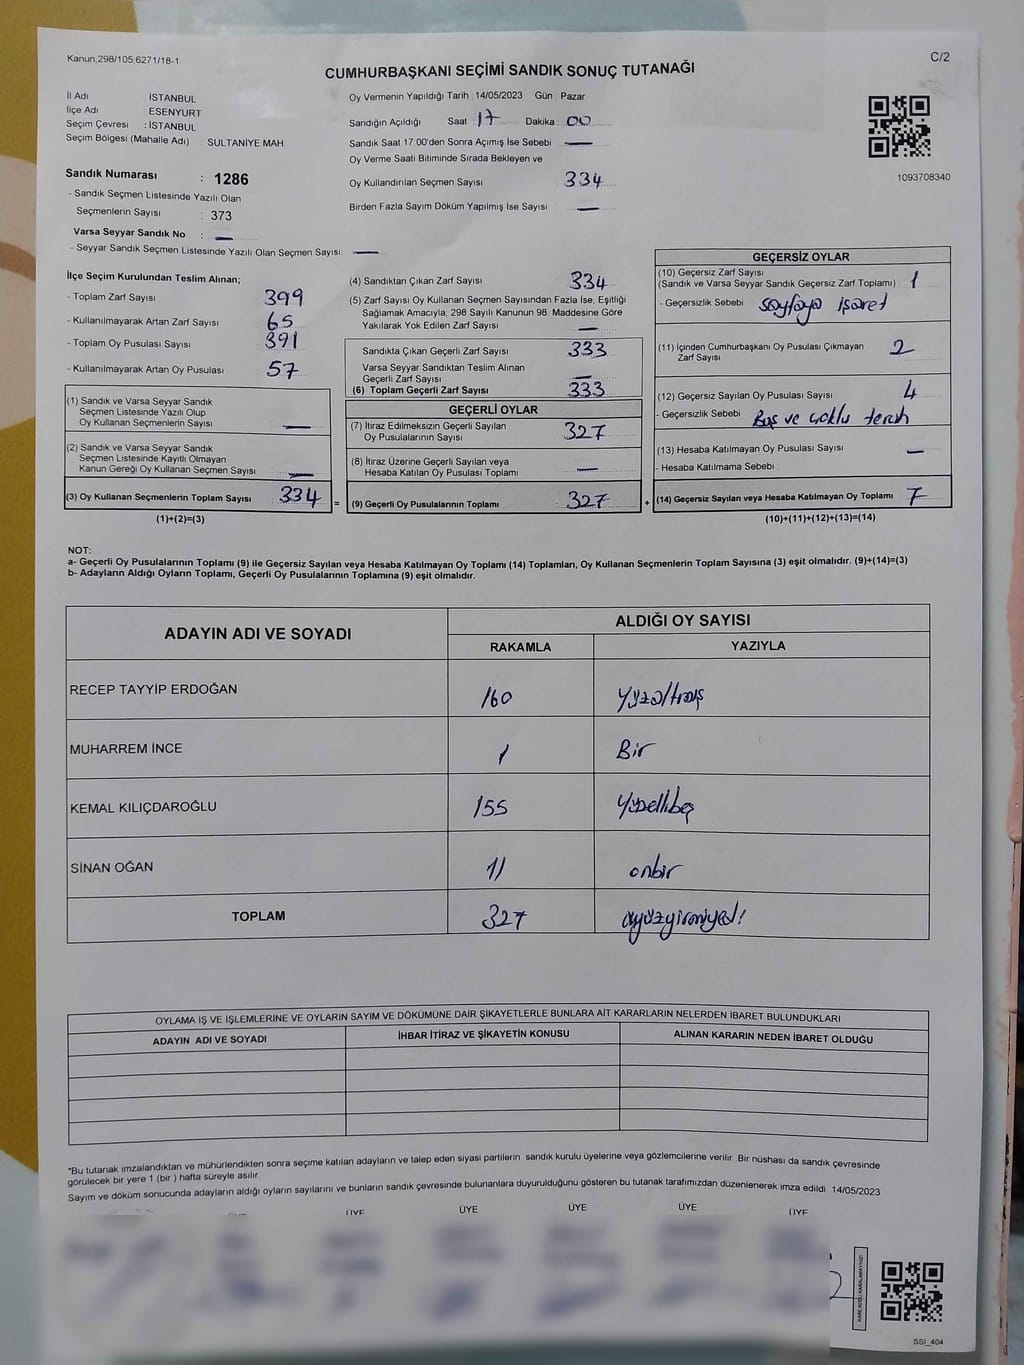 Kanun;298/105,6271/18-1
C/2
CUMHURBAŞKANI SEÇİMİ SANDIK SONUÇ TUTANAĞI
İl Adı İSTANBUL
İlçe Adı ESENYURT
Seçim Çevresi : İSTANBUL
Seçim Bölgesi (Mahalle Adı) SULTANİYE MAH.
Sandık Numarası : 1286
- Sandık Seçmen Listesinde Yazılı Olan
Seçmenlerin Sayısı : 373
Varsa Seyyar Sandık No : —
- Seyyar Sandık Seçmen Listesinde Yazılı Olan Seçmen Sayısı: —
Oy Vermenin Yapıldığı Tarih : 14/05/2023 Gün : Pazar
Sandığın Açıldığı Saat : 17 Dakika : 00
Sandık Saat 17.00'den Sonra Açımış İse Sebebi —
Oy Verme Saati Bitiminde Sırada Bekleyen ve
Oy Kullandırılan Seçmen Sayısı 334
Birden Fazla Sayım Döküm Yapılmış İse Sayısı —
1093708340
İlçe Seçim Kurulundan Teslim Alınan;
- Toplam Zarf Sayısı 399
- Kullanılmayarak Artan Zarf Sayısı 65
- Toplam Oy Pusulası Sayısı 391
- Kullanılmayarak Artan Oy Pusulası 57
(1) Sandık ve Varsa Seyyar Sandık
Seçmen Listesinde Yazılı Olup
Oy Kullanan Seçmenlerin Sayısı —
(2) Sandık ve Varsa Seyyar Sandık
Seçmen Listesinde Kayıtlı Olmayan
Kanun Gereği Oy Kullanan Seçmen Sayısı —
(3) Oy Kullanan Seçmenlerin Toplam Sayısı 334 =
(1)+(2)=(3)
(4) Sandıktan Çıkan Zarf Sayısı 334
(5) Zarf Sayısı Oy Kullanan Seçmen Sayısından Fazla İse, Eşitliği
Sağlamak Amacıyla, 298 Sayılı Kanunun 98. Maddesine Göre
Yakılarak Yok Edilen Zarf Sayısı —
Sandıkta Çıkan Geçerli Zarf Sayısı 333
Varsa Seyyar Sandıktan Teslim Alınan
Geçerli Zarf Sayısı —
(6) Toplam Geçerli Zarf Sayısı 333
GEÇERLİ OYLAR
(7) İtiraz Edilmeksizin Geçerli Sayılan
Oy Pusulalarının Sayısı 327
(8) İtiraz Üzerine Geçerli Sayılan veya
Hesaba Katılan Oy Pusulası Toplamı —
(9) Geçerli Oy Pusulalarının Toplamı : 327 +
GEÇERSİZ OYLAR
(10) Geçersiz Zarf Sayısı
(Sandık ve Varsa Seyyar Sandık Geçersiz Zarf Toplamı) 1
- Geçersizlik Sebebi : sayfaya işaret
(11) İçinden Cumhurbaşkanı Oy Pusulası Çıkmayan
Zarf Sayısı 2
(12) Geçersiz Sayılan Oy Pusulası Sayısı 4
- Geçersizlik Sebebi : Boş ve çoklu tercih
(13) Hesaba Katılmayan Oy Pusulası Sayısı —
- Hesaba Katılmama Sebebi :
(14) Geçersiz Sayılan veya Hesaba Katılmayan Oy Toplamı 7
(10)+(11)+(12)+(13)=(14)
NOT:
a- Geçerli Oy Pusulalarının Toplamı (9) ile Geçersiz Sayılan veya Hesaba Katılmayan Oy Toplamı (14) Toplamları, Oy Kullanan Seçmenlerin Toplam Sayısına (3) eşit olmalıdır. (9)+(14)=(3)
b- Adayların Aldığı Oyların Toplamı, Geçerli Oy Pusulalarının Toplamına (9) eşit olmalıdır.
ADAYIN ADI VE SOYADI ALDIĞI OY SAYISI
RAKAMLA YAZIYLA
RECEP TAYYİP ERDOĞAN 160 yüzaltmış
MUHARREM İNCE 1 Bir
KEMAL KILIÇDAROĞLU 155 yüzellibeş
SİNAN OĞAN 11 onbir
TOPLAM 327 üçyüzyirmiyedi
OYLAMA İŞ VE İŞLEMLERİNE VE OYLARIN SAYIM VE DÖKÜMÜNE DAİR ŞİKAYETLERLE BUNLARA AİT KARARLARIN NELERDEN İBARET BULUNDUKLARI
ADAYIN ADI VE SOYADI İHBAR İTİRAZ VE ŞİKAYETİN KONUSU ALINAN KARARIN NEDEN İBARET OLDUĞU
*Bu tutanak imzalandıktan ve mühürlendikten sonra seçime katılan adayların ve talep eden siyasi partilerin sandık kurulu üyelerine veya gözlemcilerine verilir. Bir nüshası da sandık çevresinde
görülecek bir yere 1 (bir) hafta süreyle asılır.
Sayım ve döküm sonucunda adayların aldığı oyların sayılarını ve bunların sandık çevresinde bulunanlara duyurulduğunu gösteren bu tutanak tarafımızdan düzenlenerek imza edildi. 14/05/2023
ÜYE ÜYE ÜYE ÜYE ÜYE
KARE KODU KARALAMAYINIZ!
SSI_404